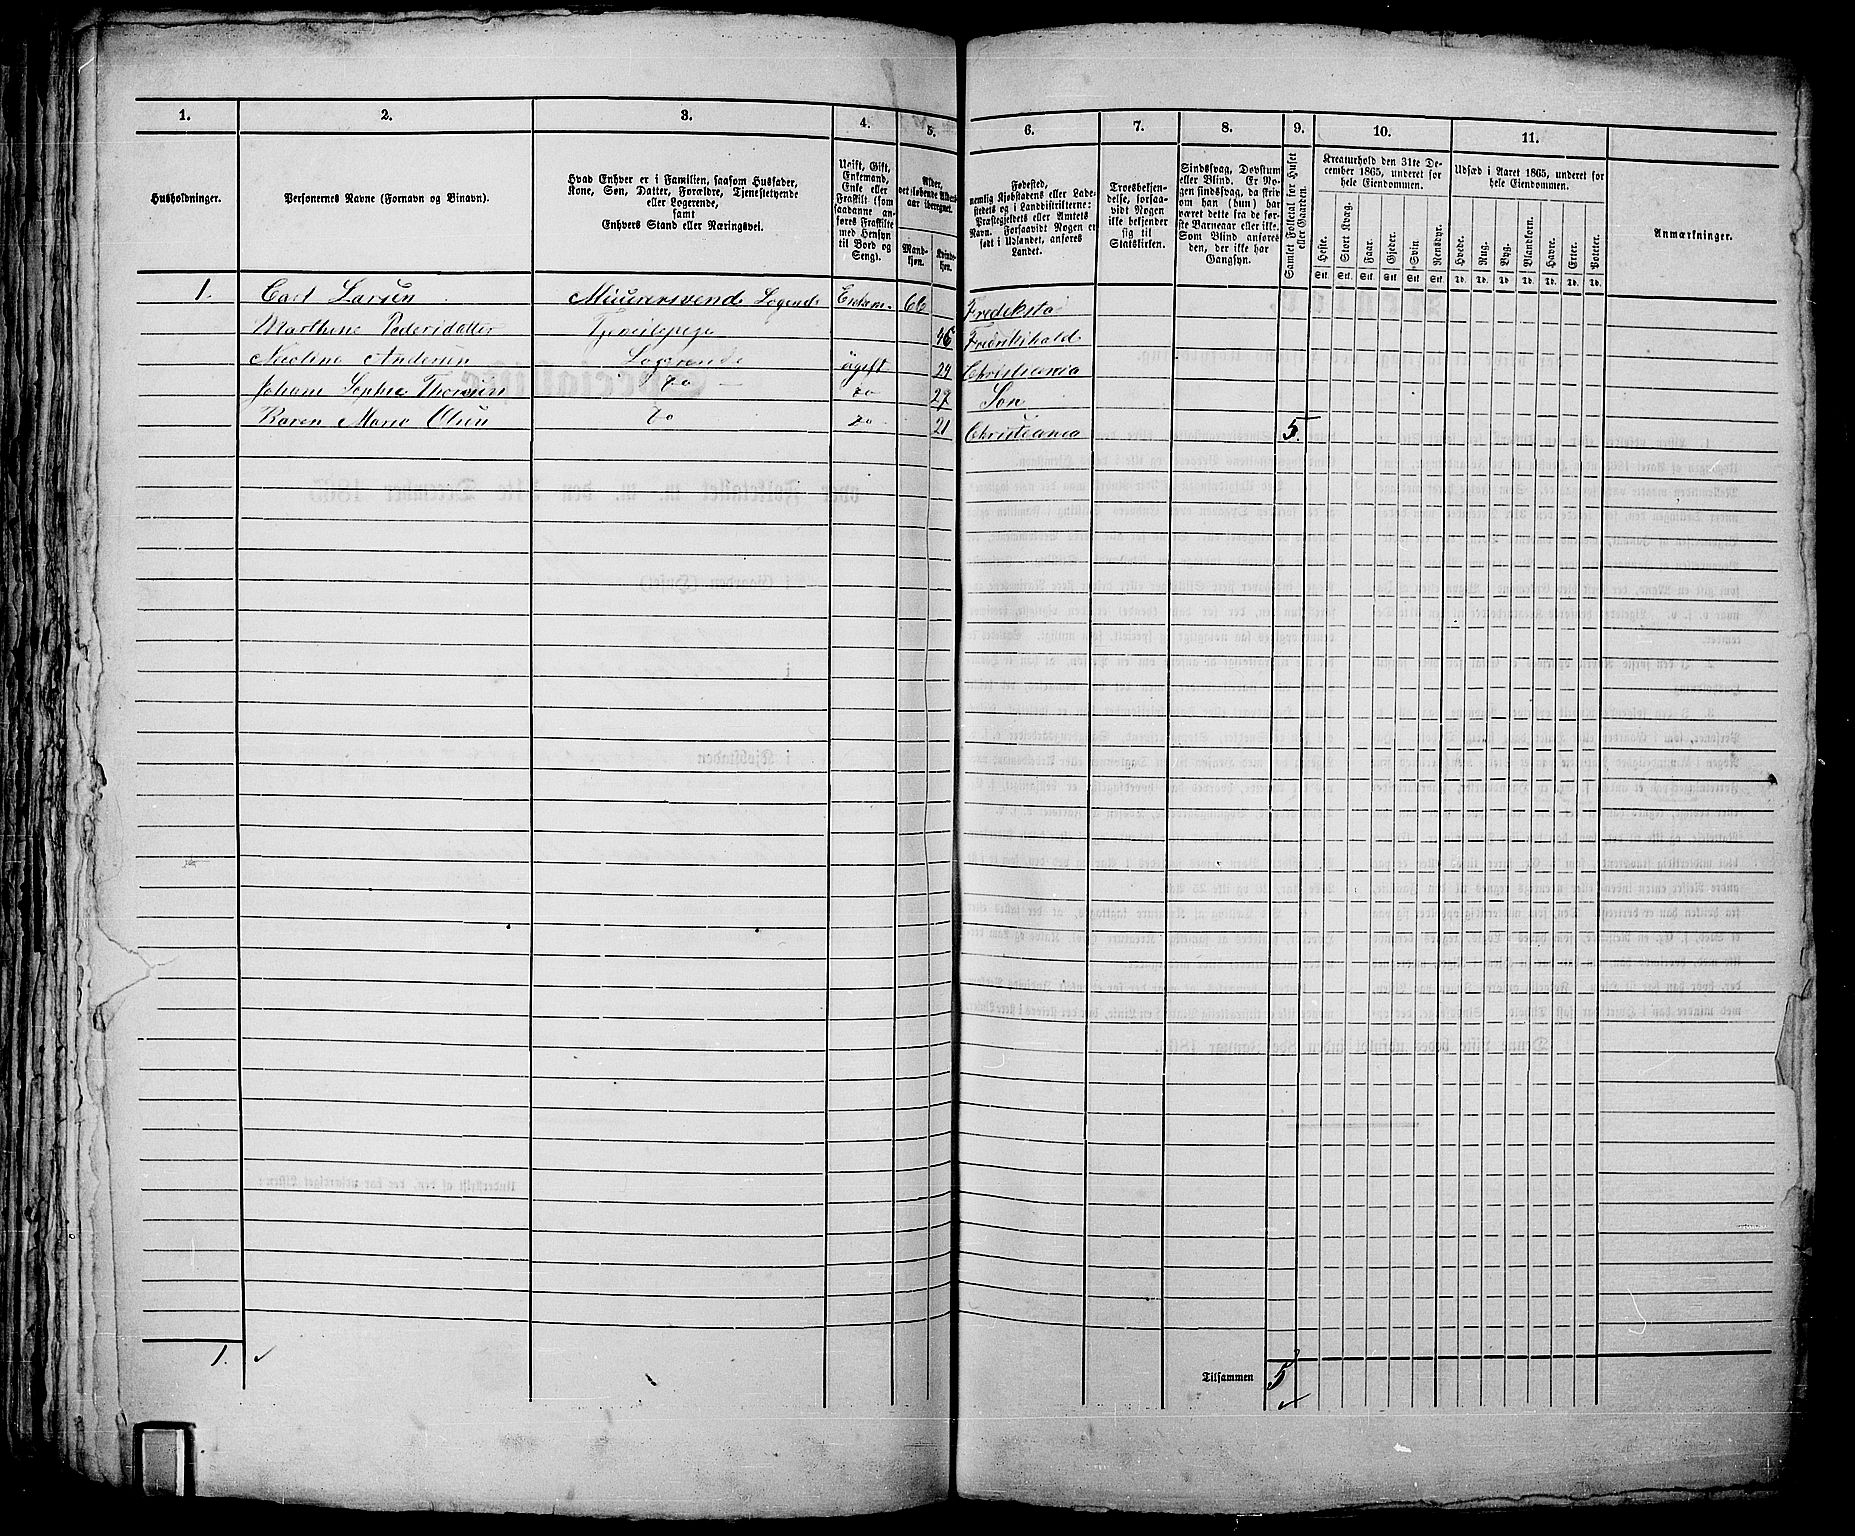 1. 2. 3. 4. 5. 6. 7. 8. 9. 10. 11.
Husholdninger.
Personernes Navne (Fornavn og Binavn).
Hvad Enhver er i Familien, saasom Husfader,
Kone, Søn, Datter, Forældre, Tjenestetyende
eller Logerende,
samt
Enhvers Stand eller Næringsvei.
Ugift, Gift,
Enkemand,
Enke eller
Fraskilt (som
saadanne an-
føres Fraskilte
med Hensyn
til Bord og
Seng).
Alder,
det løbende Alders-
aar iberegnet.
Mand-
kjøn.
Kvinde-
kjøn.
Fødested,
nemlig Kjøbstadens eller Lade-
stedets og i Landdistrikterne:
Præstegjeldets eller Amtets
Navn. Forsaavidt Nogen er
født i Udlandet, anføres
Landet.
Troesbekjen-
delse, forsaa-
vidt Nogen
ikke bekjender
sig til
Statskirken.
Sindssvag, Døvstum
eller Blind. Er No-
gen sindssvag, da skriv
om han (hun) har
været dette fra de før-
ste Barneaar eller ikke.
Som Blind anføres
den, der ikke har
Gangsyn.
Samlet Folketal for Huset
eller Gaarden.
Kreaturhold den 31te De-
cember 1865, underet for
hele Eiendommen.
Heste. Stort Kvæg. Faar. Gjeder. Svin. Rensdyr.
Stk. Stk. Stk. Stk. Stk. Stk.
Udsæd i Aaret 1865, underet for
hele Eiendommen.
Hvede. Rug. Byg. Blandkorn. Havre. Erter. Poteter.
Td. Td. Td. Td. Td. Td. Td.
Anmærkninger.
1. Carl Larsen Muurersvend Logerende Enkem. 66 Fredeksta
Marthine Pedersdatter 46 Fredrikshald
Andersen Logerende ugift 24 Christiania
Johane Sophie Thoresen do do 27 Son
Karen Marie Olsen do do 21 Christiania 5.
1.
Tilsammen 5